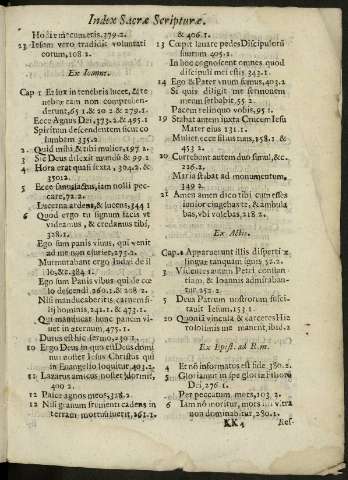 Index Sacræ Scripturæ.
Hodie mecum eris. 379.2.
23 Iesum vero tradidit voluntati
eorum, 108 2.
Ex Ioanne.
Cap 1 Et lux in tenebris lucet, & te
nebræ eam non comprehen-
derunt, 65 1. & 50 2 & 279.1.
Ecce Agnus Dei, 373.2. & 495 1
Spiritum descendentem sicut co
lumbam 335.2.
2 Quid mihi & tibi mulier, 197 2.
3 Sic Deus dilexit mundū & 99 1
4 Hora erat quasi sexta, 304.2. &
350 1 2.
5 Ecce sanus factus es, iam noli pec-
care, 72.2.
Lucerna ardens, & lucens, 344 1
6 Quod ergo tu signum facis vt
videamus, & credamus tibi,
328.1.
Ego sum panis viuus, qui venit
ad me non esuriet, 275.2.
Murmurabant ergo Iudæi de il
lo, &c. 384 1.
Ego sum Panis vibus qui de cœ
lo descendi. 261.1. & 128 2.
Nisi manducaueritis carnem fi-
lij hominis, 242.1. & 473.1.
Qui manducat hunc panem vi-
uet in æternum, 475.1.
Durus est hic sermo, 230 1.
10 Ergo Deus in quo est Deus domi
nus noster Iesus Christus qui
in Euangelio loquitur, 403.2.
11 Lazarus amicus noster dormit,
400 2.
12 Pater agnos meos, 328.2.
12 Nisi granum frumenti cadens in
terram, mortuū fuerit, 261.1.
& 406 1.
13 Cœpit lauare pedes Discipulorū
suorum 405.1.
In hoc cognoscent omnes quod
discipuli mei estis 343.1.
14 Ego & Pater vnum sumus, 403.2
Si quis diligit me sermonem
meum seruabit, 55 2.
Pacem relinquo vobis, 95 1.
19 Stabat autem iuxta Crucem Iesu
Mater eius 131.1.
Mulier ecce filius tuus, 158.1. &
453 2.
20 Currebant autem duo simul, &c.
226.2.
Maria stabat ad monumentum,
149 2.
21 Amen amen dico tibi cum esses
iunior cingebas te, & ambula
bas, vbi volebas, 218 2.
Ex Actis.
Cap. 2 Apparuerunt illis dispertitæ
linguæ tanquam ignis 52.2.
3 Videntes autem Petri constan
tiam, & Ioannis admiraban-
tur 252.2.
5 Deus Patrum nostrorum susci-
tauit Iesum, 53 1
20 Quoniā vincula & carceres Hie
rosolimis me manent, ibid. 2
Ex Epist. ad Rom.
4 Et nō infirmatus est fide, 380.2.
5 Gloriamur in spe gloriæ filiorū
Dei, 276 1.
Per peccatum mors, 103.2.
6 Iam nō moritur, mors illi vltra
non dominabitur, 280.1.
KK 4
Ref-